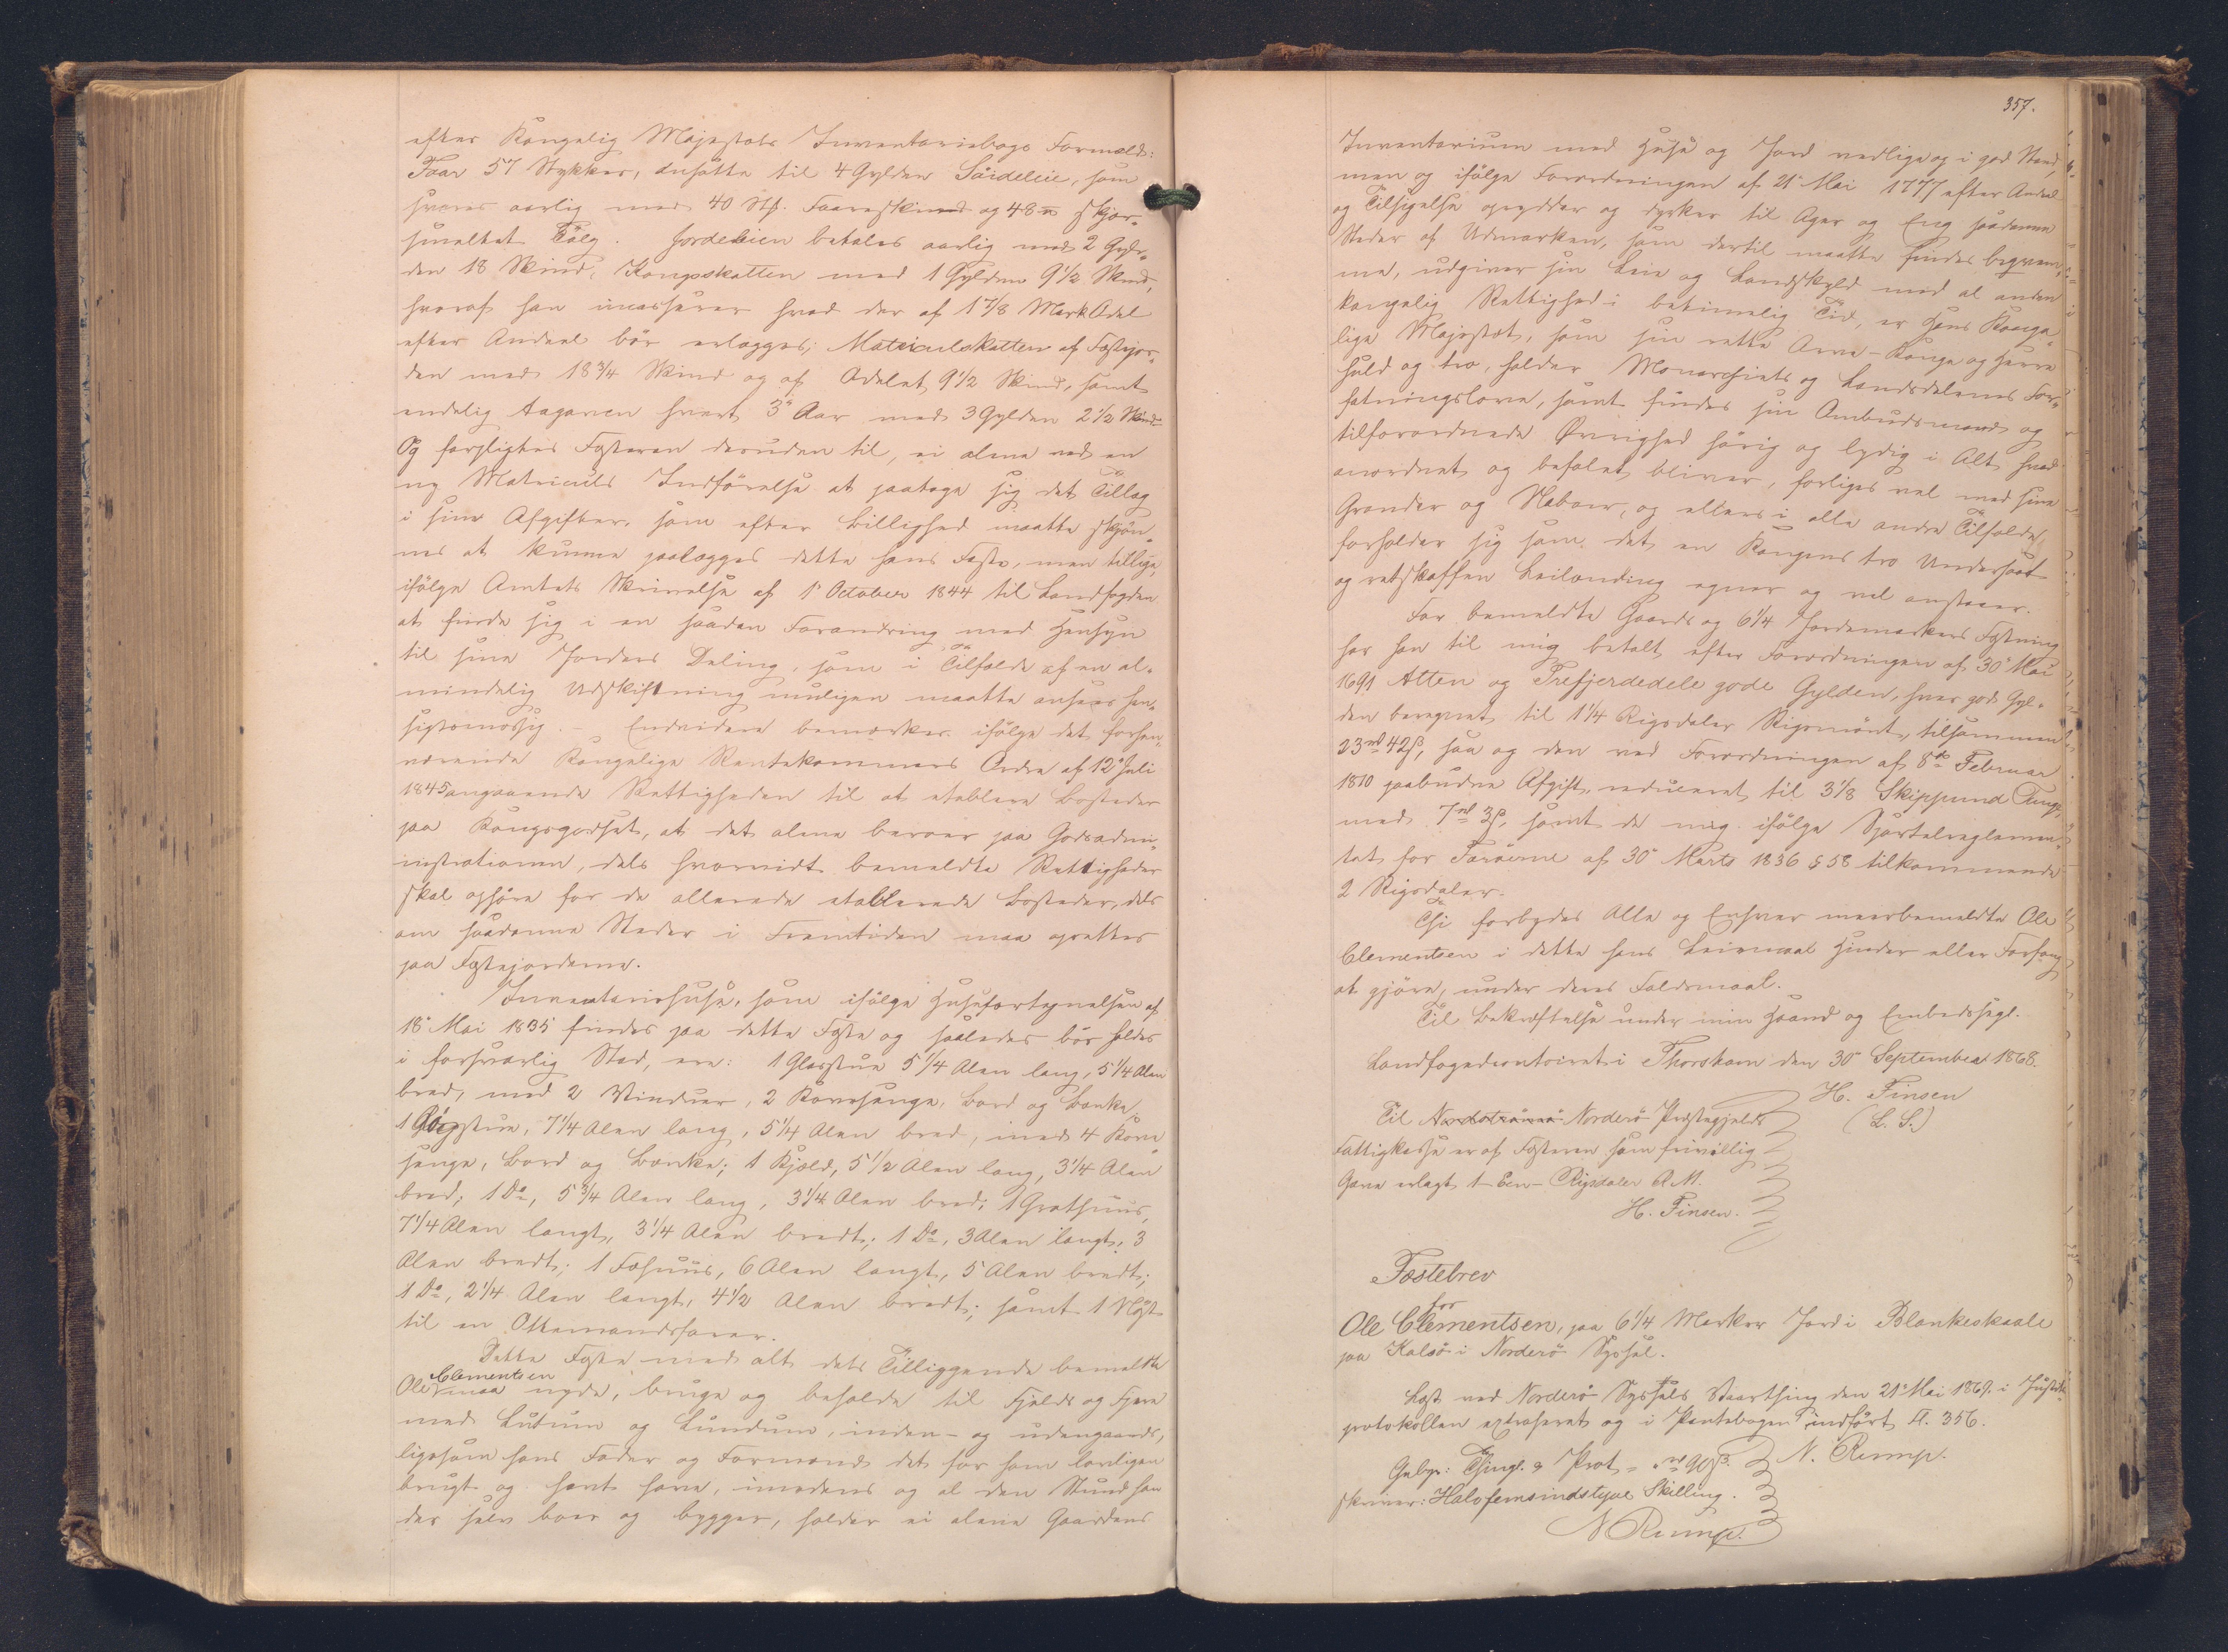 efter Kongelig Majestæts Inventariebogs Formeld:
Faar 57 Stykker, ansatte til 4 Gylden Söideleie, som
svares aarlig med 40 Stk. Faareskind og 48 ℔ skjær-
smeltet Tælg. Jordeleien betales aarlig med 2 Gyl-
den 18 Skind, Kongsskatten med 1 Gylden 9 1/2 Skind,
hvoraf han incasserer hvad der af 1 7/8 Mark Odel
efter Andeel bör erlægges; Matriculskatten af Festejor-
den med 18 3/4 Skind og af Odelet 9 1/2 Skind, samt
endelig Aagaven hvert 3die Aar med 3 Gylden 2 1/2 Skind
Og forpligtes Fæsteren desuden til, ei alene ved en
ny Matriculs Indförelse at paatage sig det Tillæg
i sine Afgifter, som efter Billighed maatte skjön-
nes at kunne paalægges dette hans Fæste, men tillige,
ifölge Amtets Skrivelse af 1 October 1844 til Landfogden
at finde sig i en saadan Forandring med Hensyn
til sine Jorders Deling, som i Tilfælde af en al-
mindelig Udskiftning muligen maatte ansees hen-
sigtsmæssig. - Endvidere bemærkes ifölge det forhen-
værende Kongelige Rentekammers Ordre af 12 Juli
1845 angaaende Rettigheden til at etablere Bosteder
paa Kongsgodset, at det alene beroer paa Godsadmi-
nistrationen, dels hvorvidt bemeldte Rettigheder
skal ophöre for de allerede etablerede Bosteder, dels
om saadanne Steder i Fremtiden maa oprettes
paa Fæstejorderne.
Inventariehuse, som ifölge Huusfortegnelsen af
18 Mai 1835 findes paa dette Fæste og saaledes bör holdes
i forsvarlig Stand, ere: 1 Glasstue 5 1/4 Alen lang, 5 1/4 Alen
bred, med 2 Vinduer, 2 Kovesenge, Bord og Bænke,
1 Rögstue, 7 1/4 Alen lang, 5 1/4 Alen bred, med 4 Kove
senge, Bord og Bænke; 1 Kjeld, 5 1/2 Alen lang, 3 1/4 Alen
bred; 1 Do, 5 3/4 Alen lang, 3 1/4 Alen bred; 1 Grothuus,
7 1/4 Alen langt, 3 1/4 Alen bredt; 1 Do, 3 Alen langt, 3
Alen bredt; 1 Fæhuus, 6 Alen langt, 5 Alen bredt;
1 Do, 2 1/4 Alen langt, 4 1/2 Alen bredt; samt 1 Nöst
til en Ottemandsfarer.
Dette Fæste med alt dets Tilliggende bemeldte
Ole Clementsen maa nyde, bruge og beholde til Fjelds og Fjære
med Lutum og Lundum, inden- og udengaards,
ligesom hans Fader og Formænd det för ham lovligen
brugt og havt have, imedens og al den Stund han
der selv boer og bygger, holder ei alene Gaardens
357.
Inventarium med Huse og Jord vedlige og i god Stand,
men og ifölge Forordningen af 21 Mai 1777 efter Andeel
og Tilsigelse oprydder og dyrker til Ager og Eng saadanne
Steder af Udmarken, som dertil maatte findes beqvem-
me, udgiver sin Leie og Landskyld med al anden
kongelig Rettighed i betimelig Tid, er Hans Konge-
lige Majestæt, som sin rette Arve-Konge og Herre
huld og tro, holder Monarchiets og Landsdelenes For-
fatningslove, samt findes sin Ombudsmand og
tilforordnede Øvrighed hörig og lydig i Alt hvad
anordnet og befalet bliver, forliges vel med sine
Grander og Naboer, og ellers i alle andre Tilfælde
forholder sig som det en Kongens tro Undersaat
og retskaffen Leilænding egner og vel anstaaer.
For bemeldte Gaards og 6 1/4 Jordemarkers Fæstning
har han til mig betalt efter Forordningen af 30 Mai
1691 Atten og Trefjerdedele gode Gylden, hver god Gyl-
den beregnet til 1 1/4 Rigsdaler Rigsmönt, tilsammen
23 rd 42 ß, saa og den ved Forordningen af 8de Februar
1810 paabudne Afgift, reduceret til 3 1/8 Skippund Tunge,
med 7 rd 3 ß, samt de mig ifölge Sportelreglemen-
tet for Færöerne af 30 Marts 1836 § 58 tilkommende
2 Rigsdaler.
Thi forbydes Alle og Enhver meerbemeldte Ole
Clementsen i dette hans Leiemaal Hinder eller Forfang
at gjöre, under deres Faldsmaal.
Til Bekræftelse under min Haand og Embedssegl.
Landfogedcontoiret i Thorshavn den 30 September 1868.
H. Finsen
(L. S.)
Til Nordströmö Norderö Præstegjelds
Fattigkasse er af Fæsteren som frivillig
Gave erlagt 1 - Een - Rigsdaler R. M.
H. Finsen.
Fæstebrev
for
Ole Clementsen, paa 6 1/4 Marker Jord i Blankeskaale
paa Kalsö i Norderö Syssel.
Læst ved Norderö Syssels Vaarthing den 21 Mai 1869. i Justits
protokollen extraheret og i Pantebogen indfört Fl. 356.
Gebyr: Thingl. & Prot = " rd 90 ß. N. Rump.
skriver: Halvfemsindstyve Skilling.
N Rump.